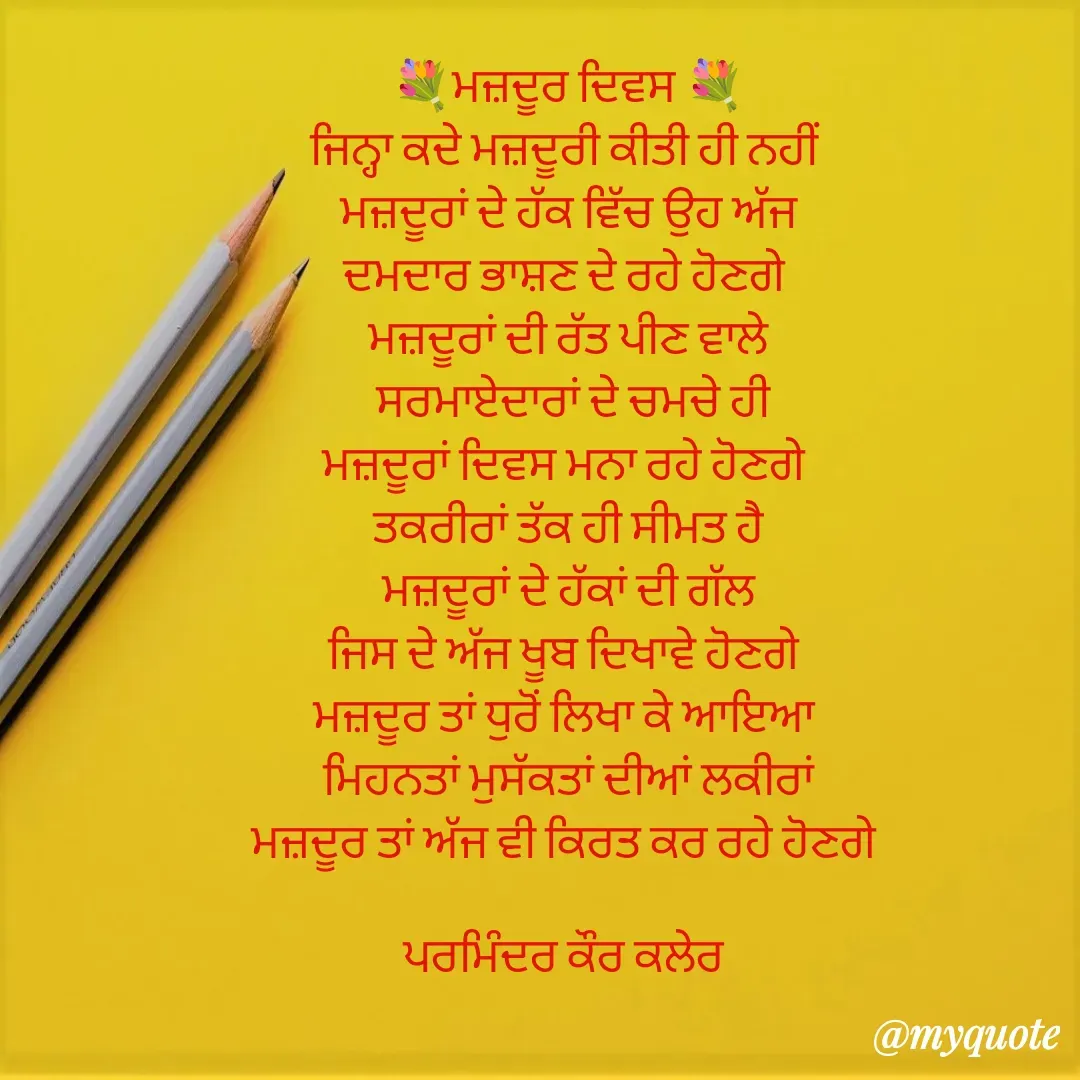 💐ਮਜ਼ਦੂਰ ਦਿਵਸ 💐
ਜਿਨ੍ਹਾ ਕਦੇ ਮਜ਼ਦੂਰੀ ਕੀਤੀ ਹੀ ਨਹੀਂ
ਮਜ਼ਦੂਰਾਂ ਦੇ ਹੱਕ ਵਿੱਚ ਉਹ ਅੱਜ
ਦਮਦਾਰ ਭਾਸ਼ਣ ਦੇ ਰਹੇ ਹੋਣਗੇ
ਮਜ਼ਦੂਰਾਂ ਦੀ ਰੱਤ ਪੀਣ ਵਾਲੇ
ਸਰਮਾਏਦਾਰਾਂ ਦੇ ਚਮਚੇ ਹੀ
ਮਜ਼ਦੂਰਾਂ ਦਿਵਸ ਮਨਾ ਰਹੇ ਹੋਣਗੇ
ਤਕਰੀਰਾਂ ਤੱਕ ਹੀ ਸੀਮਤ ਹੈ
ਮਜ਼ਦੂਰਾਂ ਦੇ ਹੱਕਾਂ ਦੀ ਗੱਲ
ਜਿਸ ਦੇ ਅੱਜ ਖੂਬ ਦਿਖਾਵੇ ਹੋਣਗੇ
ਮਜ਼ਦੂਰ ਤਾਂ ਧੁਰੋਂ ਲਿਖਾ ਕੇ ਆਇਆ
ਮਿਹਨਤਾਂ ਮੁਸੱਕਤਾਂ ਦੀਆਂ ਲਕੀਰਾਂ
ਮਜ਼ਦੂਰ ਤਾਂ ਅੱਜ ਵੀ ਕਿਰਤ ਕਰ ਰਹੇ ਹੋਣਗੇ
ਪਰਮਿੰਦਰ ਕੌਰ ਕਲੇਰ
@myquote